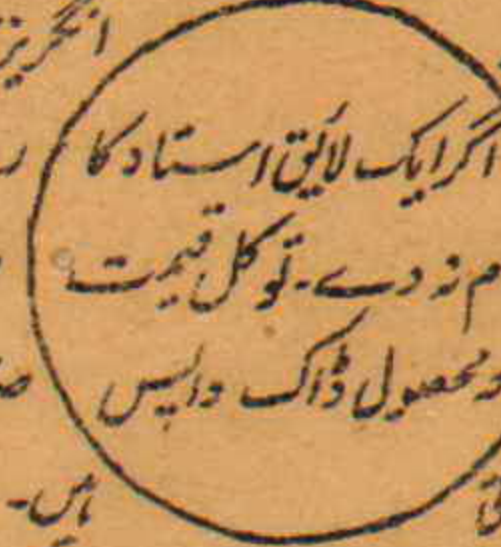 انگریز
اگر ایک لائق استاد کا
م نہ دے۔ تو کل قیمت
و محصول ڈاک واپس
ہیں۔